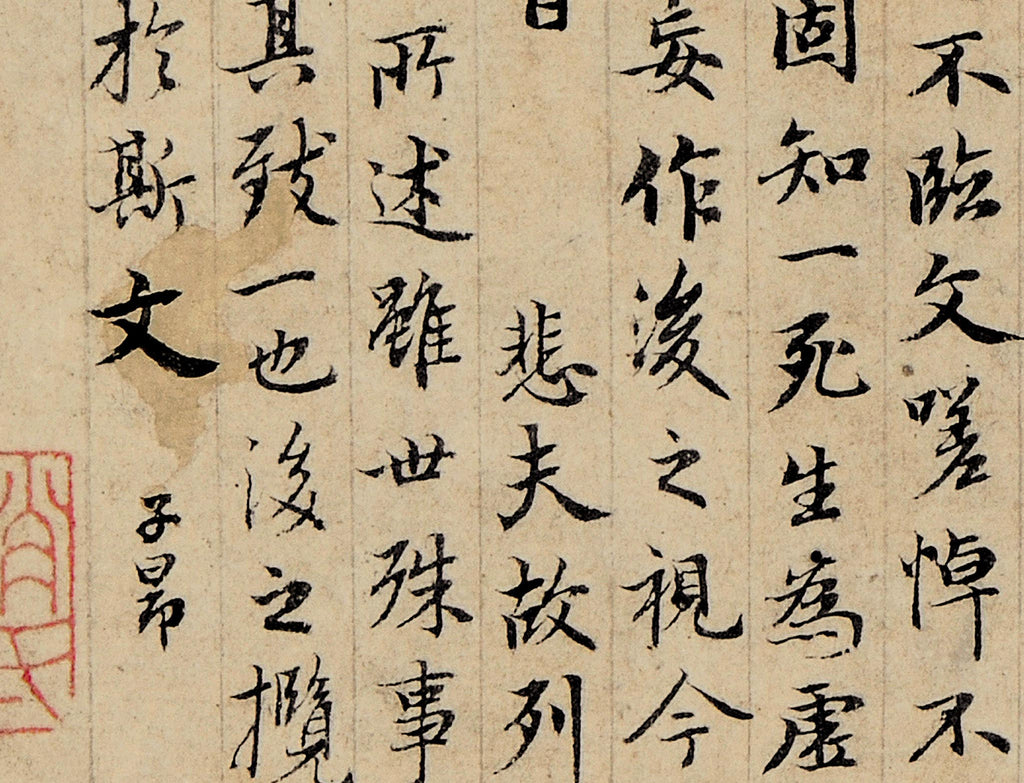 不臨文嗟悼不
固知一死生為虛
妄作後之視今
悲夫故列
所述雖世殊事
其致一也後之攬
於斯文
子昂